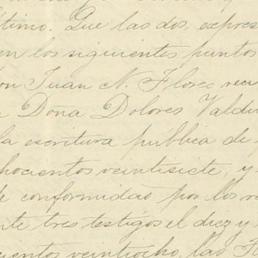 ltimo. Que las dos expres
en los siguientes puntos
on Juan N. Flores rec
a Doña Dolores Valdi
la escritura publica de
hocientos veintisiete, y
de conformidad por los
te tres testigos el diez y
cientos veintiocho, las